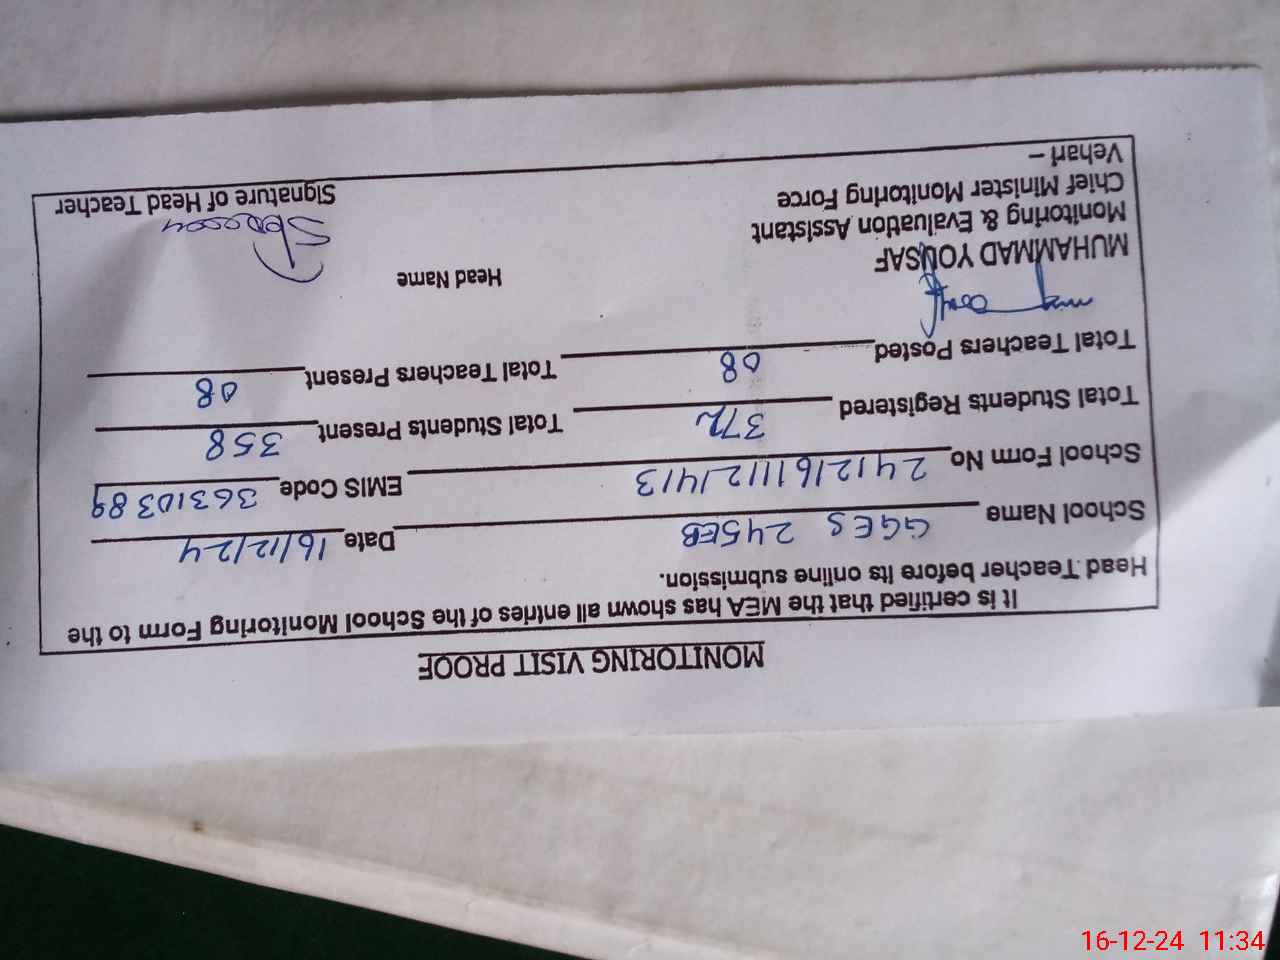 MONITORING VISIT PROOF
It is certified that the MEA has shown all entries of the School Monitoring Form to the
Head Teacher before its online submission.
School Name GGES 245EB Date 16/12/24
School Form No 24121611121413 EMIS Code 36310389
Total Students Registered 372 Total Students Present 358
Total Teachers Posted 08 Total Teachers Present 08
MUHAMMAD YOUSAF Head Name
Monitoring & Evaluation Assistant
Chief Minister Monitoring Force
Vehari – Signature of Head Teacher
16-12-24 11:34